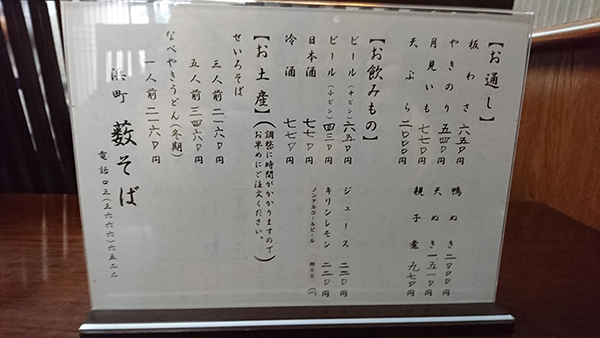 【お通し】
板わさ 六五〇円
やきのり 五四〇円
月見いも 七七〇円
天ぷら 二〇〇〇円
鴨ぬき 二〇〇〇円
天ぬき 一五一〇円
親子煮 九七〇円
【お飲みもの】
ビール(中ビン) 六五〇円
ビール(小ビン) 四三〇円
日本酒 七七〇円
冷酒 七七〇円
ジュース 二二〇円
キリンレモン 二二〇円
ノンアルコールビール 円
【お土産】(調整に時間がかかりますので
お早めにご注文ください。)
せいろそば
三人前 二一六〇円
五人前 三四六〇円
なべやきうどん(冬期)
一人前 二一六〇円
浜町 藪そば
電話〇三(三六六六)六五二二